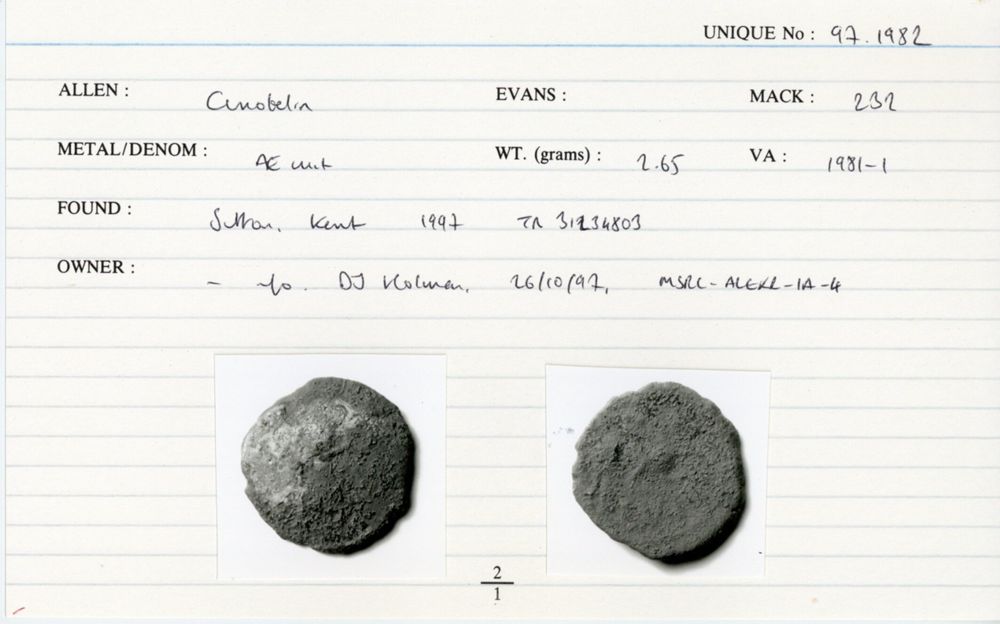 UNIQUE No : 97.1982
ALLEN : Cunobelin EVANS : MACK : 232
METAL/DENOM : AE unit WT. (grams) : 2.65 VA : 1981-1
FOUND : Sutton, Kent 1997 TR 31234803
OWNER : - DJ Holman, 26/10/97,
2
1